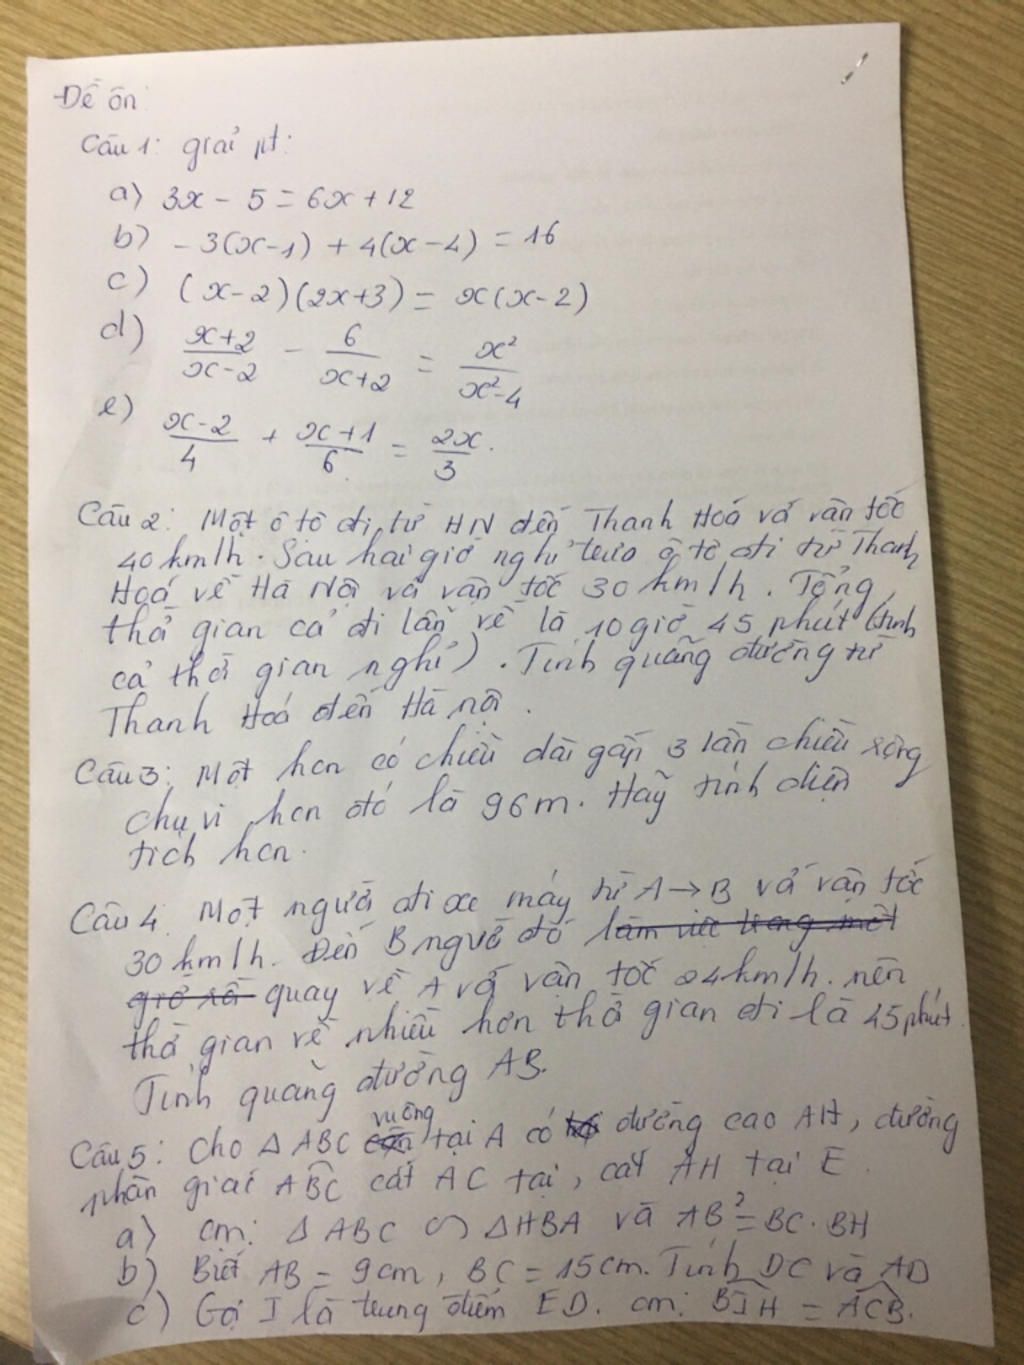 Đề ôn:
Câu 1: giải pt:
a) 3x - 5 = 6x + 12
b) - 3(x-1) + 4(x-4) = 16
c) (x-2)(2x+3) = x(x-2)
d) \frac{x+2}{x-2} - \frac{6}{x+2} = \frac{x^2}{x^2-4}
e) \frac{x-2}{4} + \frac{x+1}{6} = \frac{2x}{3}.
Câu 2: Một ô tô đi từ HN đến Thanh Hoá với vận tốc
40 km/h. Sau hai giờ nghỉ trưa ô tô đi từ Thanh
Hoá về Hà Nội với vận tốc 30 km/h. Tổng
thời gian cả đi lẫn về là 10 giờ 45 phút (tính
cả thời gian nghỉ). Tính quãng đường từ
Thanh Hoá đến Hà nội.
Câu 3: Một hcn có chiều dài gấp 3 lần chiều rộng
chu vi hcn đó là 96m. Hãy tính diện
tích hcn.
Câu 4. Một người đi xe máy từ A → B với vận tốc
30 km/h. Đến B người đó làm việc trong một
giờ rồi quay về A với vận tốc 24km/h. nên
thời gian về nhiều hơn thời gian đi là 45 phút.
Tính quãng đường AB.
Câu 5: Cho Δ ABC vuông tại A có đường cao AH, đường
phân giác ABC cắt AC tại, cắt AH tại E.
a) cm: Δ ABC ∽ Δ HBA và AB² = BC . BH
b) Biết AB = 9cm, BC = 15cm. Tính DC và AD
c) Gọi I là trung điểm ED. cm: BIH = ACB.